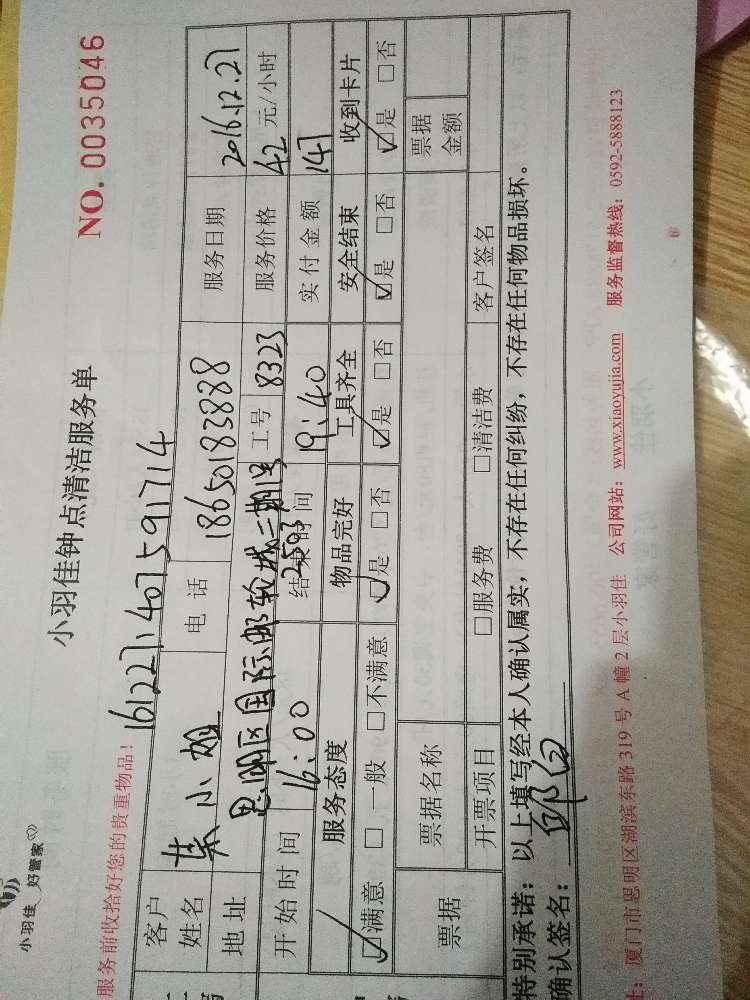 小羽佳 好管家
小羽佳钟点清洁服务单
NO. 0035046
服务前收拾好您的贵重物品！ 161227140759 1714
客户姓名 小姐 电话 18650183888 服务日期 2016.12.27
地址 思明区国际邮轮城二期1号 2503 工号 8323 服务价格 42 元/小时
开始时间 16:00 结束时间 19:40 实付金额 147
服务态度 物品完好 工具齐全 安全结束 收到卡片
☑满意 □一般 □不满意 ☑是 □否 ☑是 □否 ☑是 □否 ☑是 □否
票据 票据名称 票据金额
开票项目 □服务费 □清洁费 客户签名
特别承诺：以上填写经本人确认属实，不存在任何纠纷，不存在任何物品损坏。
确认签名：
厦门市思明区湖滨东路 319 号 A 幢 2 层小羽佳 公司网站：www.xiaoyujia.com 服务监督热线：0592-5888123